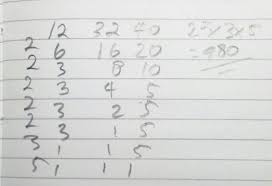 12 32 40 2⁵×3×5
2 6 16 20 =980
2 3 8 10
2 3 4 5
2 3 2 5
2 3 1 5
3 1 1 5
5 1 1 1